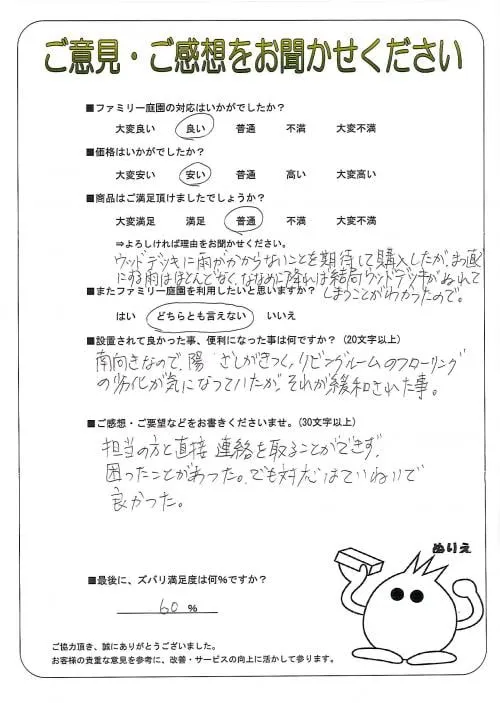 ご意見・ご感想をお聞かせください
■ファミリー庭園の対応はいかがでしたか？
大変良い 良い 普通 不満 大変不満
■価格はいかがでしたか？
大変安い 安い 普通 高い 大変高い
■商品はご満足頂けましたでしょうか？
大変満足 満足 普通 不満 大変不満
⇒よろしければ理由をお聞かせください。
ウッドデッキに雨がかからないことを期待して購入したが、まっ直ぐ
に降る雨はほとんどなく、ななめに降れば結局ウッドデッキがぬれて
しまうことがわかったので。
■またファミリー庭園を利用したいと思いますか？
はい どちらとも言えない いいえ
■設置されて良かった事、便利になった事は何ですか？（20文字以上）
南向きなので、陽ざしがきつく、リビングルームのフローリング
の劣化が気になっていたが、それが緩和された事。
■ご感想・ご要望などをお書きくださいませ。（30文字以上）
担当の方と直接連絡を取ることができず、
困ったことがあった。でも対応はていねいで
良かった。
ぬりえ
■最後に、ズバリ満足度は何％ですか？
60 %
ご協力頂き、誠にありがとうございました。
お客様の貴重な意見を参考に、改善・サービスの向上に活かして参ります。